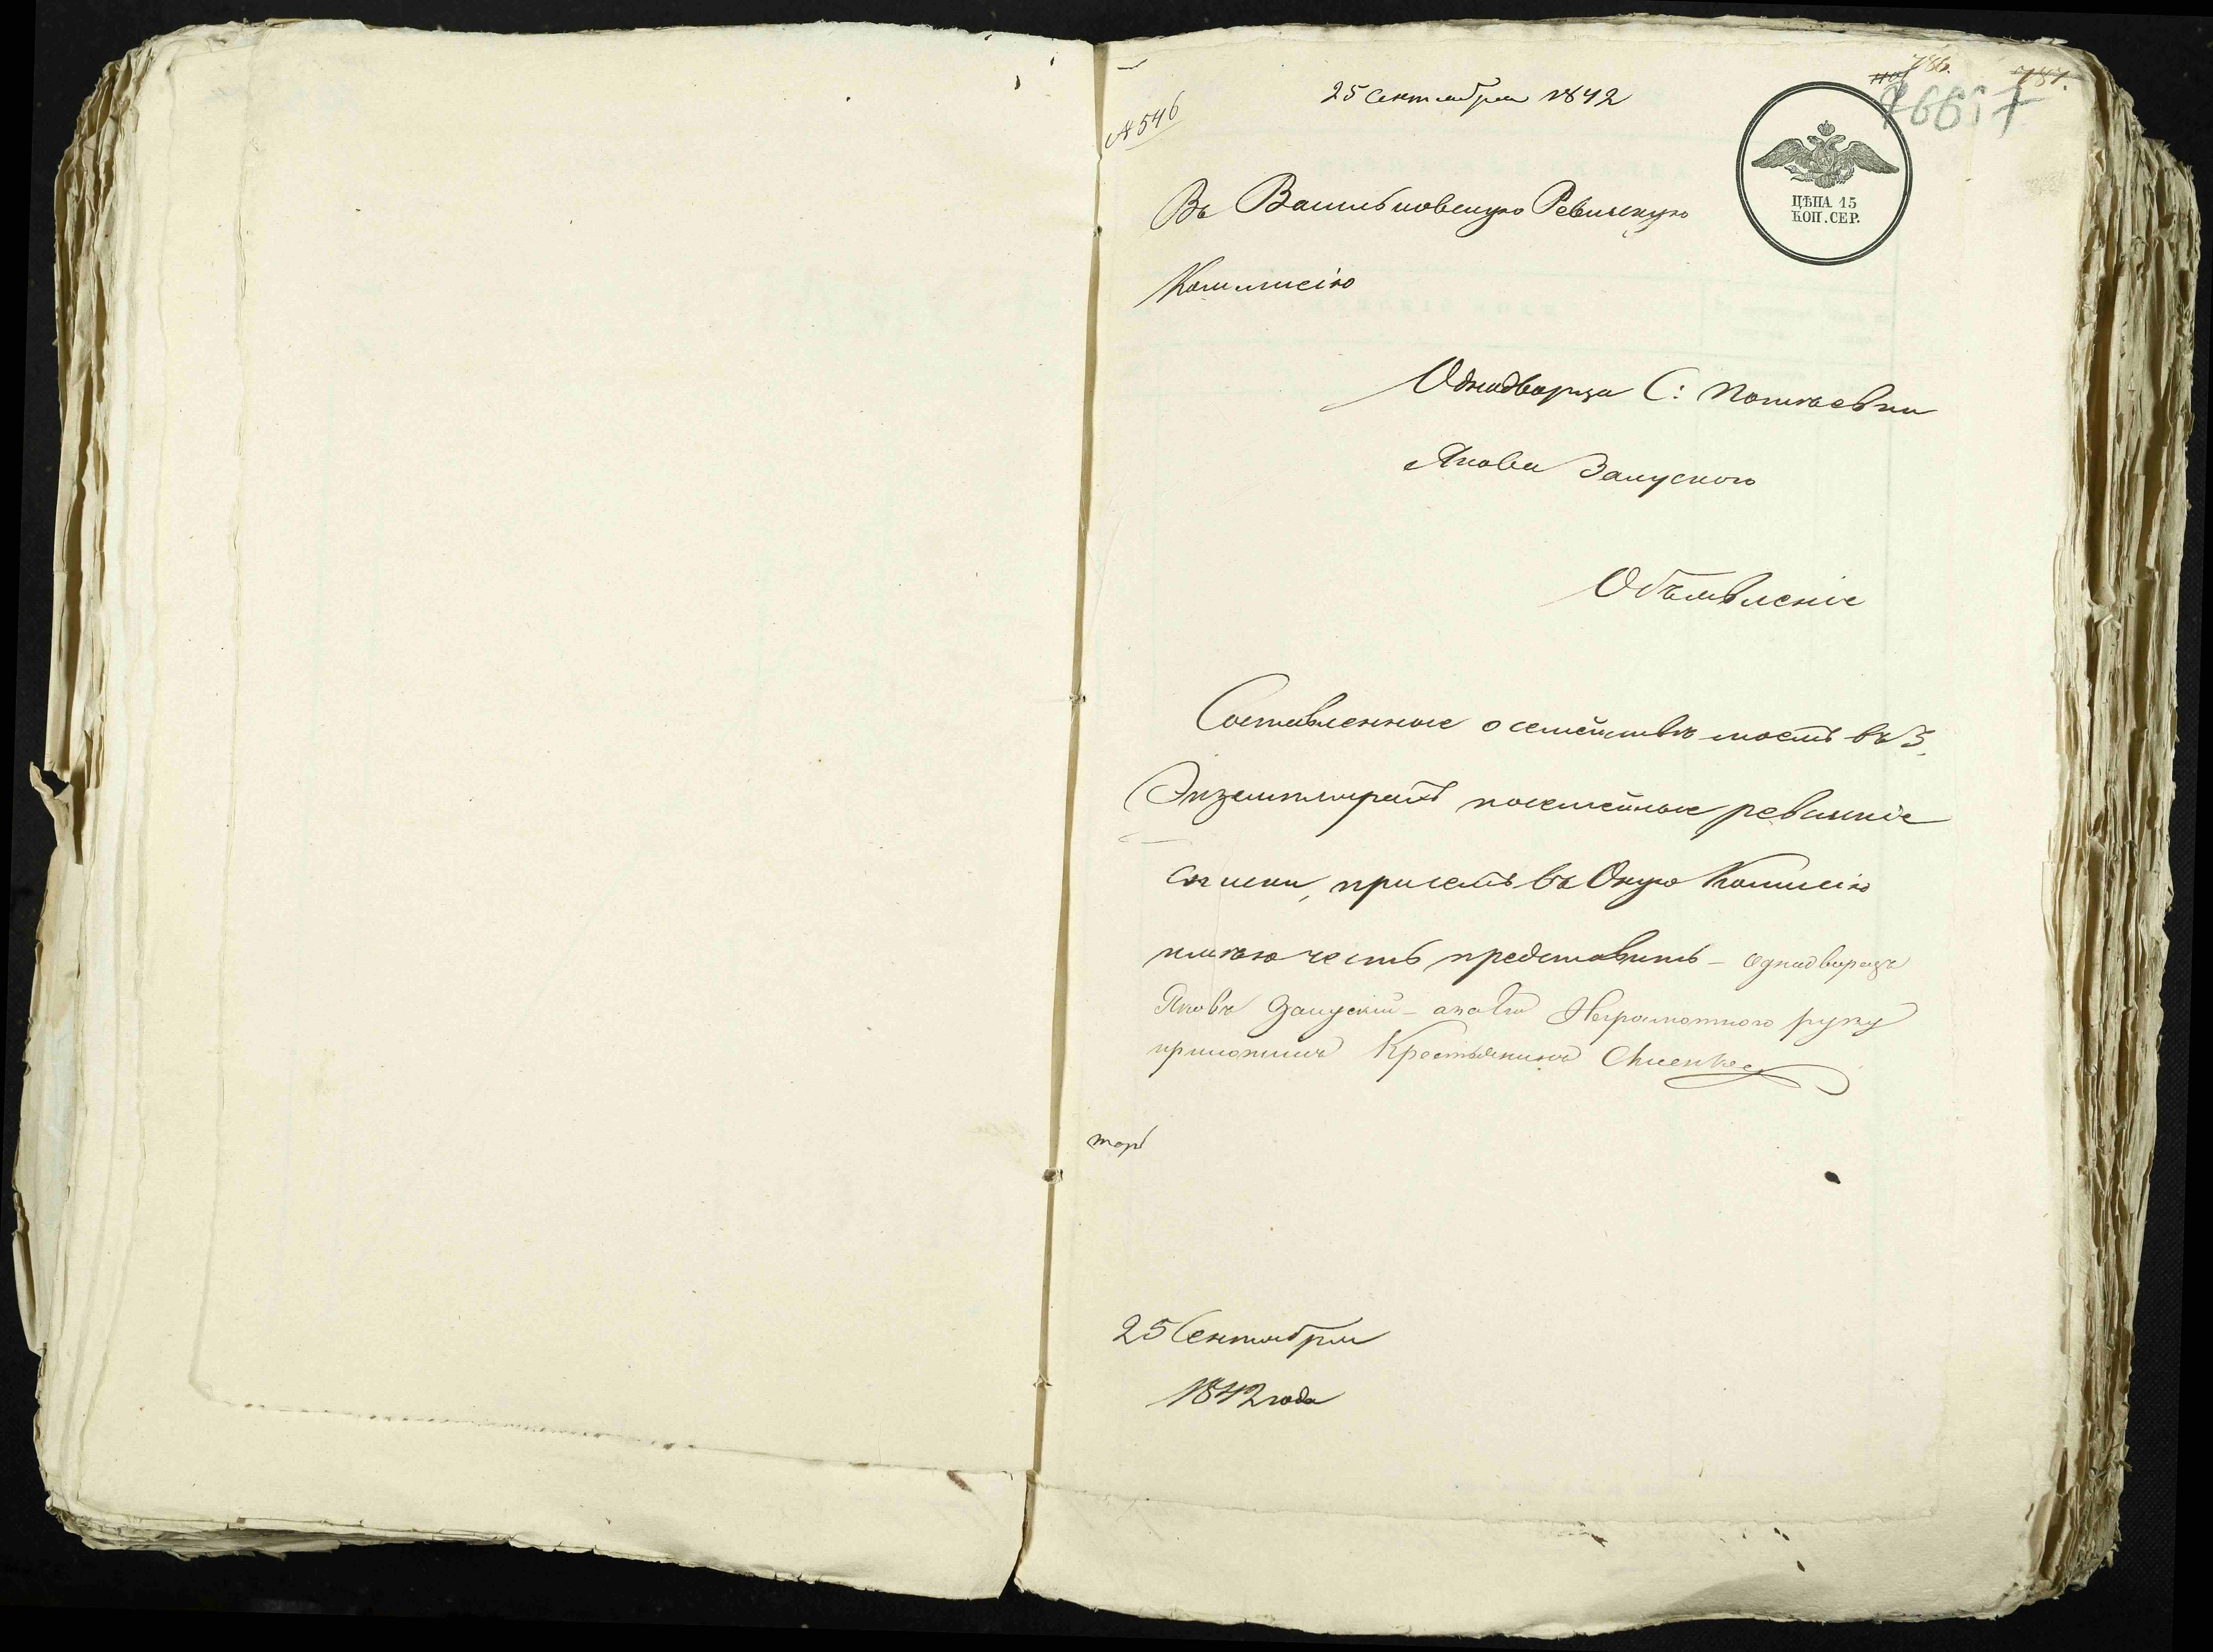 25 Сентября 1842
№ 546
786.
787.
ЦѢНА 15
КОП. СЕР.
Въ Васильковскую Ревизскую
Коммисію
Однодворца С:
Якова Залуского
Объявленіе
Составленные о семействѣ моемъ въ 3
Экземплярахъ посемейные ревизкіе
списки, при семъ въ Оную Комисію
имѣю честь представить - однодворецъ
Яковъ Залускій - а за Его Неграмотного руку
приложилъ Крестьянинъ
25 Сентября
1842 года